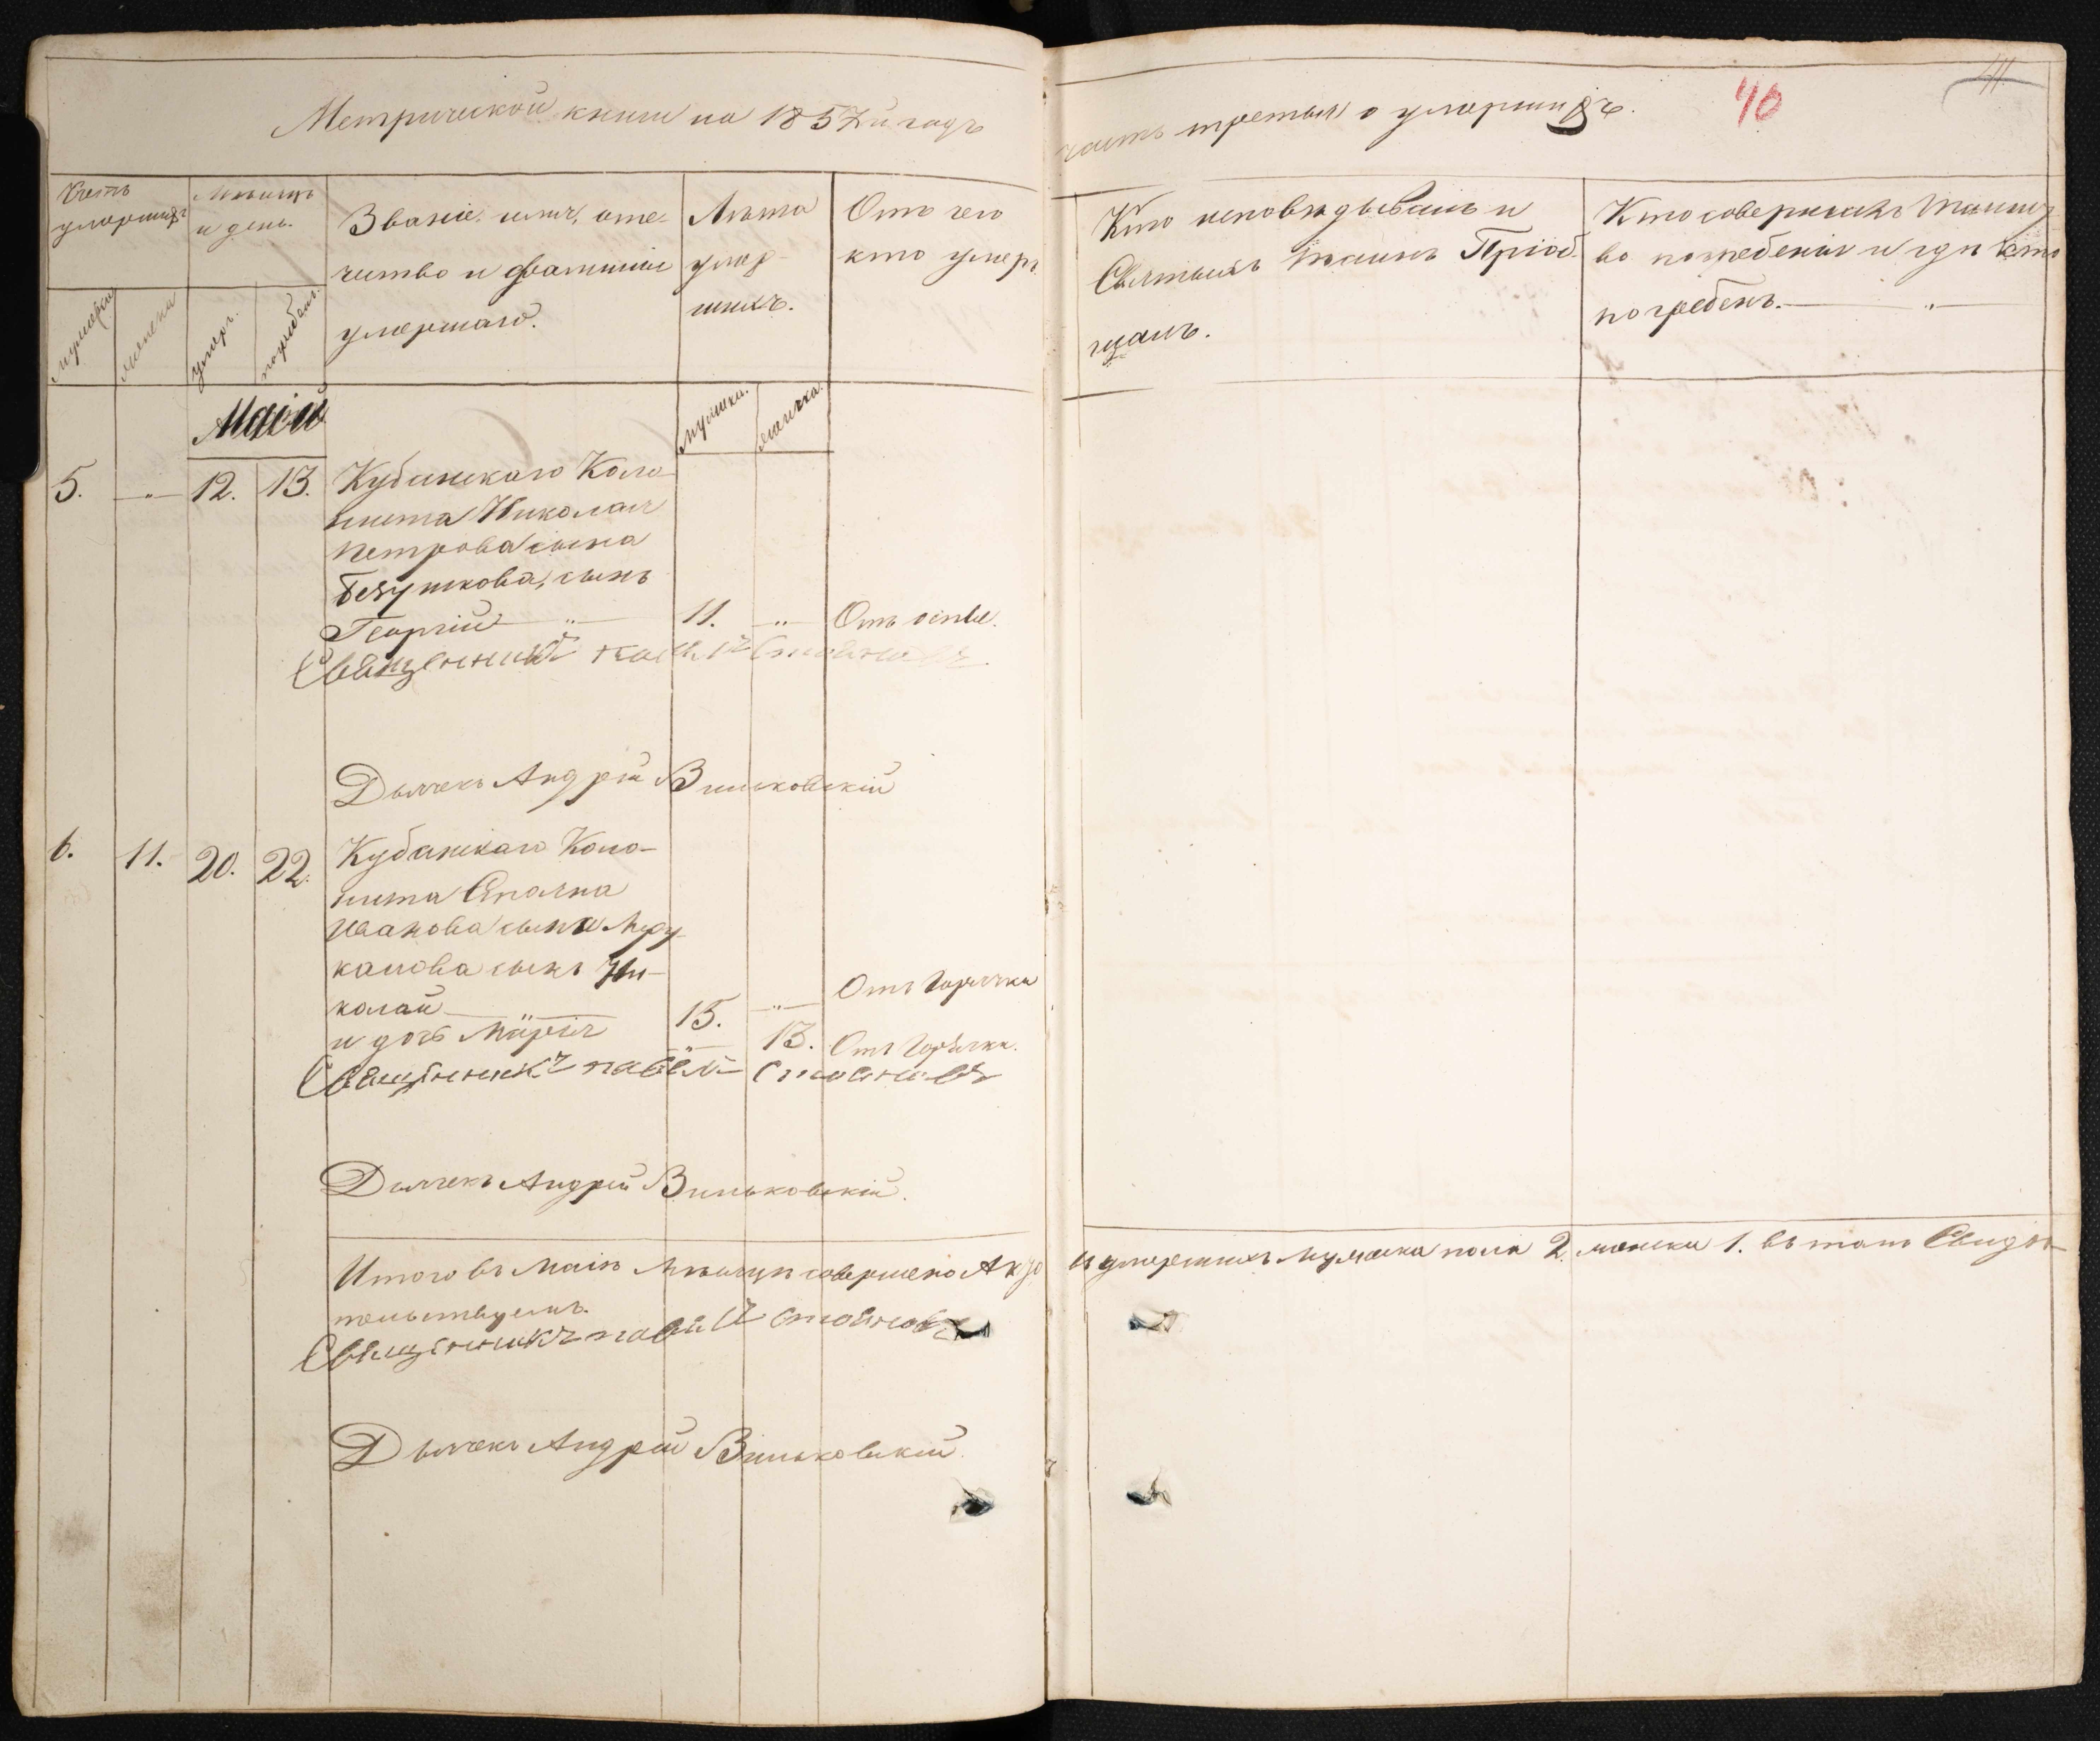 Метрической книги на 1857й годъ
часть третья о умершихъ.
40
41
Счетъ
умершихъ
Мѣсяцъ
и день.
Званіе, имя, оте-
чество и фамилія
умершаго.
Лѣта
умер-
шихъ.
Отъ чего
кто умеръ
Кто исповѣдывалъ и
Святыхъ Таинъ Пріоб-
щалъ.
Кто совершалъ Таинст
во погребенія и гдѣ кто
погребенъ.
мужска
женска
умеръ.
погребенъ.
Маій
мужска.
женска.
5. 12. 13. Кубанскаго Коло-
ниста Николая
Петрова сына
сынъ
Георгій 11. Отъ оспы.
Священникъ Павелъ Стояновъ.
Дьячекъ Андрей Виньковскій
6. 11. 20. 22. Кубанскаго Коло-
ниста Стояна
Иванова сына
сынъ Ни-
колай 15. Отъ Горячки
и дочь Марія 13. Отъ Горячки.
Священникъ Павелъ Стояновъ
Дьячекъ Андрей Виньковскій.
Итого въ Маіѣ Мѣсяцѣ совершено Акто
въ умершихъ мужеска пола 2. женска 1. въ томъ Свидѣ-
тельствуемъ.
Священникъ Павелъ Стояновъ
Дьячекъ Андрей Виньковскій